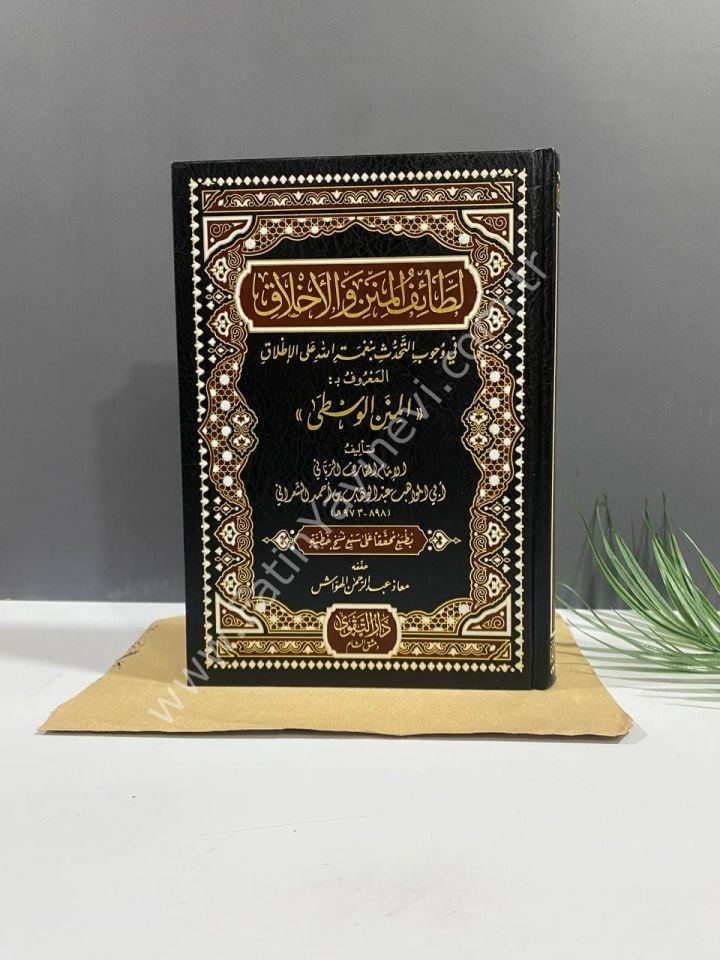 لطائف المنن والأخلاق
في وجوب التحدث بنعمة الله على الإطلاق
المعروف بـ:
«المنن الوسطى»
تأليف
الإمام العارف الرباني
أبي المواهب عبد الوهاب بن أحمد الشعراني
(٨٩٨-٩٧٣هـ)
يطبع محققا على سبع نسخ خطية
حققه
معاذ عبد الرحمن الهواش
دار التقوى
دمشق الشام
www.fatihyayinevi.com.tr